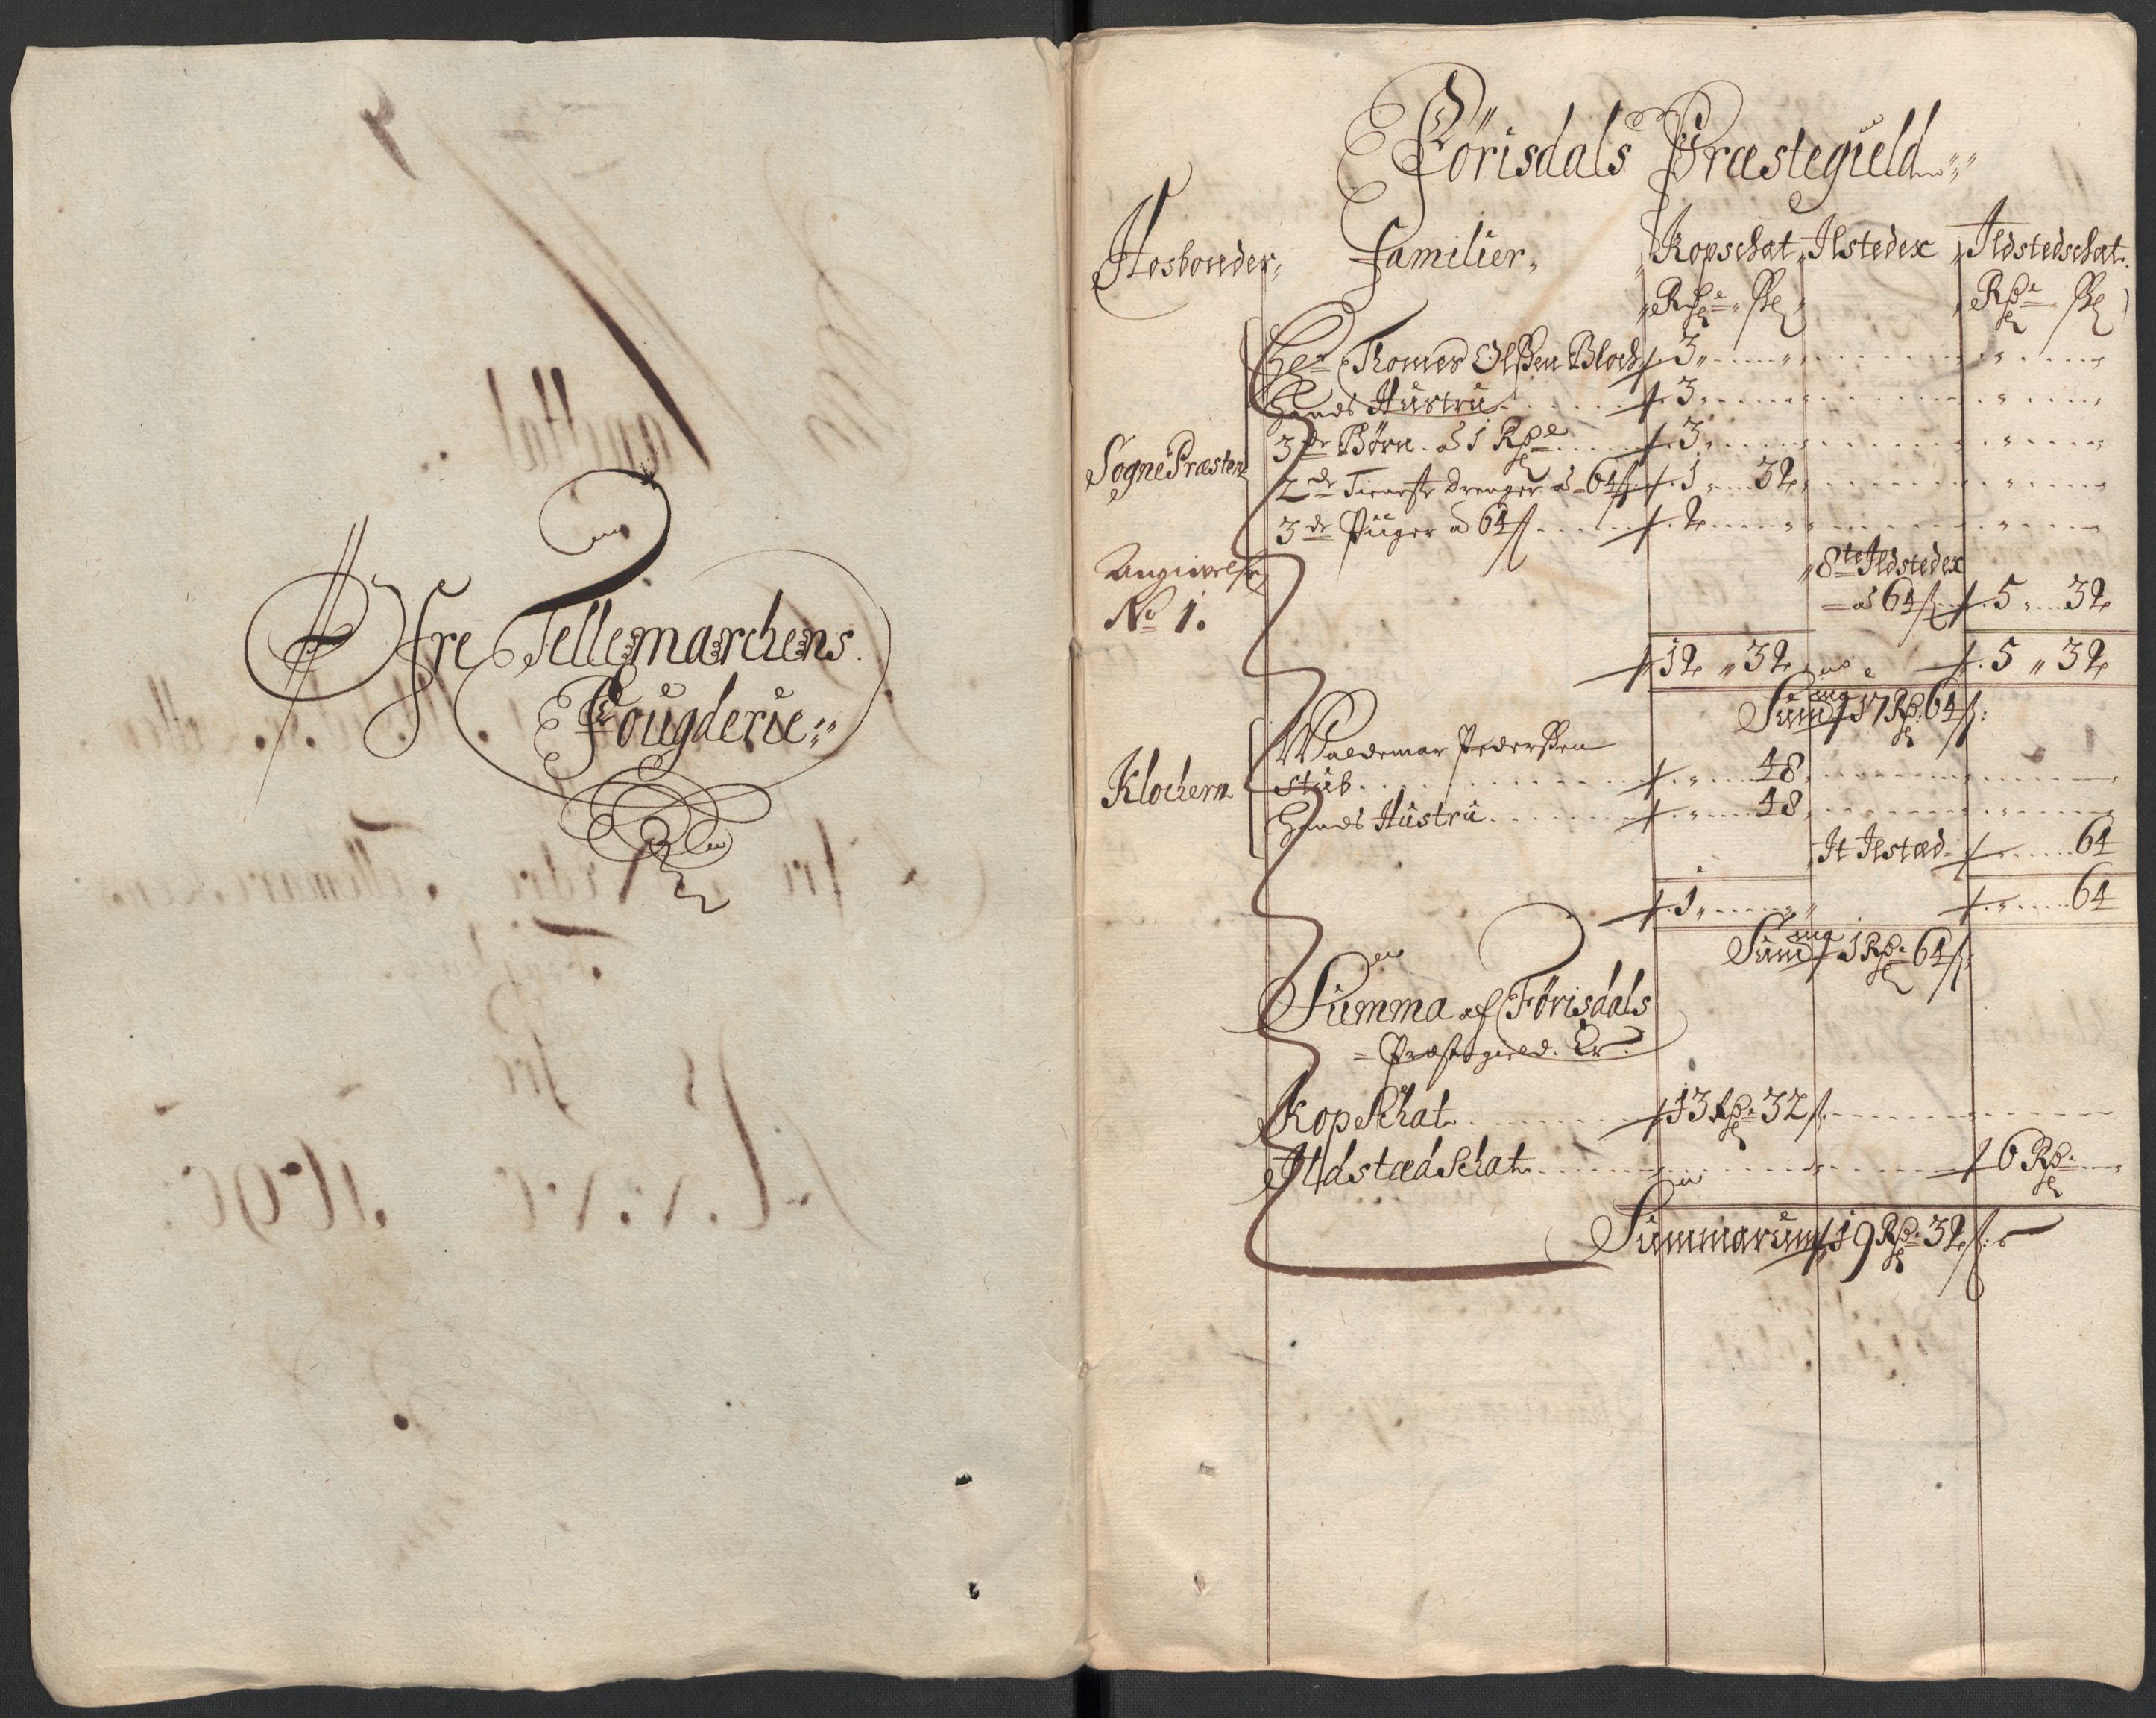 Øfre Tellemarchens
Fougderie
Førisdals Præstegield
Hosbonder
Familier
Kopschat
Ilsteder
Ildstedschat
Rdr ß
Rdr ß
Her Thomes Olßen Bloch 3
Hands Hustru 3
SognePræsten
3de Børn à 1 Rdr 3
2de Tieneste Drenger à 64 ß 1 32
3de Piiger à 64 ß 2
Angivelse
No 1.
8te Ildsteder
à 64 ß 5 32
12 32 5 32
Sum 17 Rdr 64 ß
Klochern
Waldemar Pederßen
Stub 48
Hands Hustru 48
It Ilsted 64
1 64
Sum 1 Rdr 64 ß
Summa af Førisdals
Præstegield Er
KopSchat 13 Rdr 32 ß
IldstædSchat 6 Rdr
Summarum 19 Rdr 32 ß